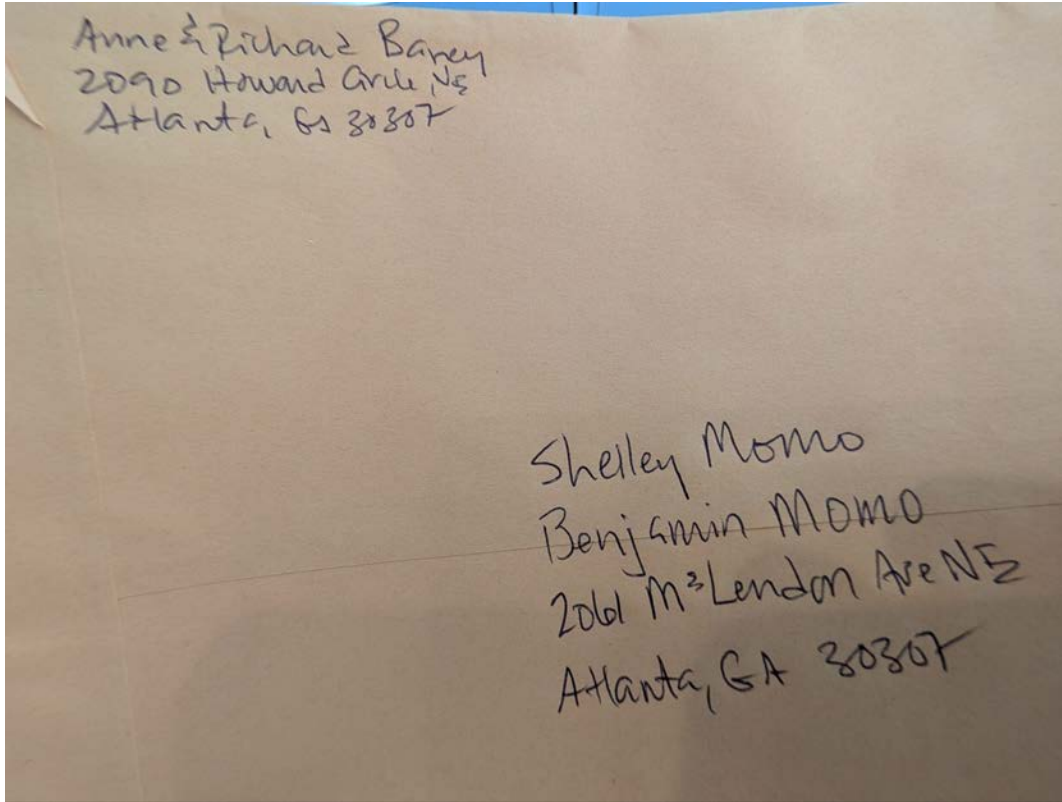 Anne & Richard Barey
2090 Howard Circle, NE
Atlanta, Ga 30307
Shelley Momo
Benjamin Momo
2061 McLendon Ave NE
Atlanta, GA 30307